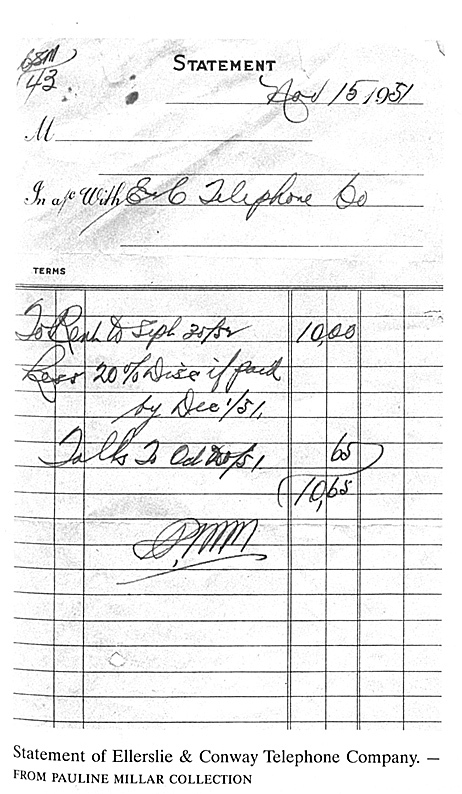 43
STATEMENT
Nov 15 1951
M
In a/c With E & C Telephone Co
TERMS
To Rent to Sept 30/52 10,00
Less 20% Disc if paid
by Dec 1/51,
Talks To Oct /51 65
10,65
Statement of Ellerslie & Conway Telephone Company. —
FROM PAULINE MILLAR COLLECTION